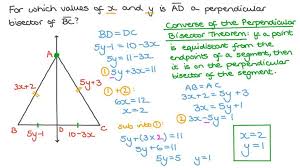 For which values of x and y is AD a perpendicular
bisector of BC?
Converse of the Perpendicular
Bisector Theorem: if a point
is equidistant from the
endpoints of a segment, then
it is on the perpendicular
bisector of the segment.
A
3x+2
5y+3
B
5y-1
D
10-3x
C
BD=DC
5y-1=10-3x
5y=11-3x
① 5y+3x=11
①+②
6x=12
x=2
sub into ①:
5y+(3×2)=11
5y+6=11
5y=5
y=1
AB=AC
3x+2=5y+3
3x=5y+1
② 3x-5y=1
x=2
y=1